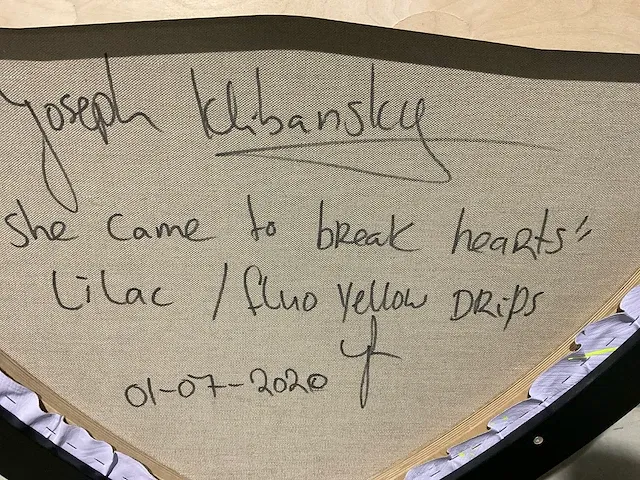 Joseph Klibansky
she came to break hearts"
Lilac / fluo yellow DRips
01-07-2020